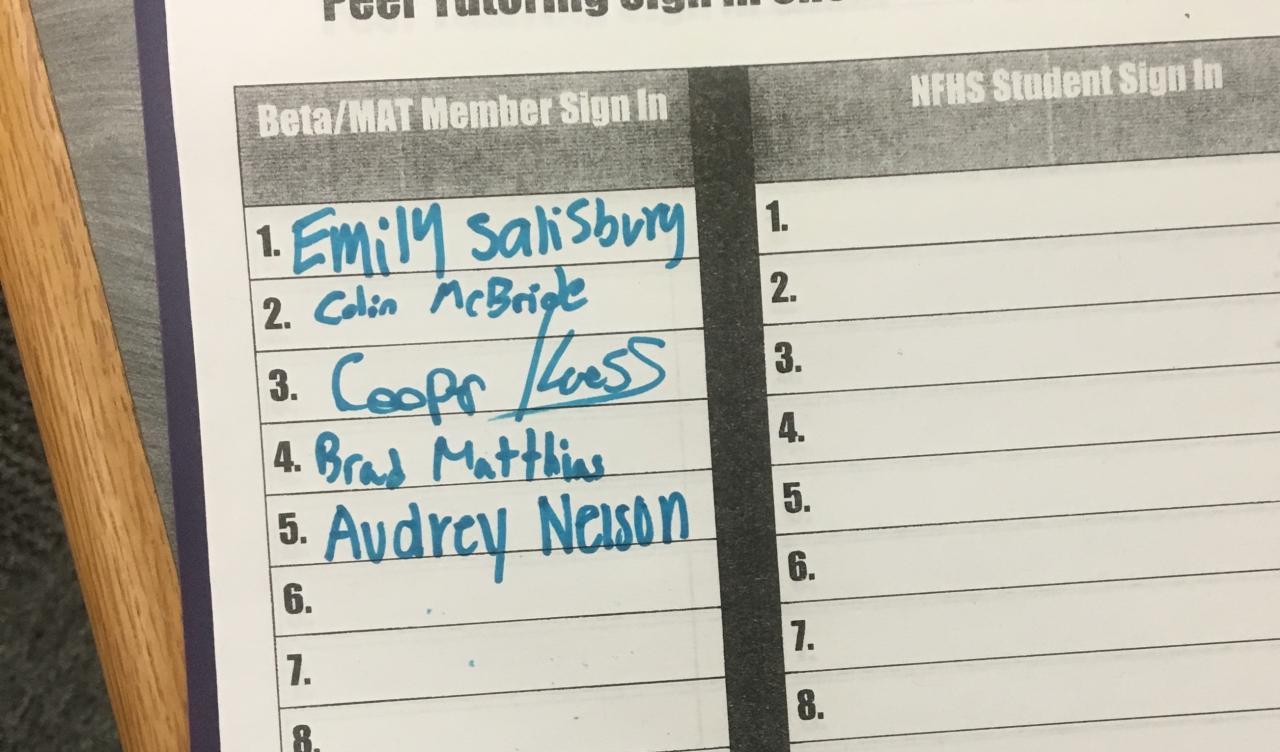 Peer Tutoring Sign In
Beta/MAT Member Sign In
NFHS Student Sign In
1. Emily Salisbury
2. Colin McBride
3. Cooper
4. Brad Matthias
5. Audrey Nelson
6.
7.
8.
1.
2.
3.
4.
5.
6.
7.
8.